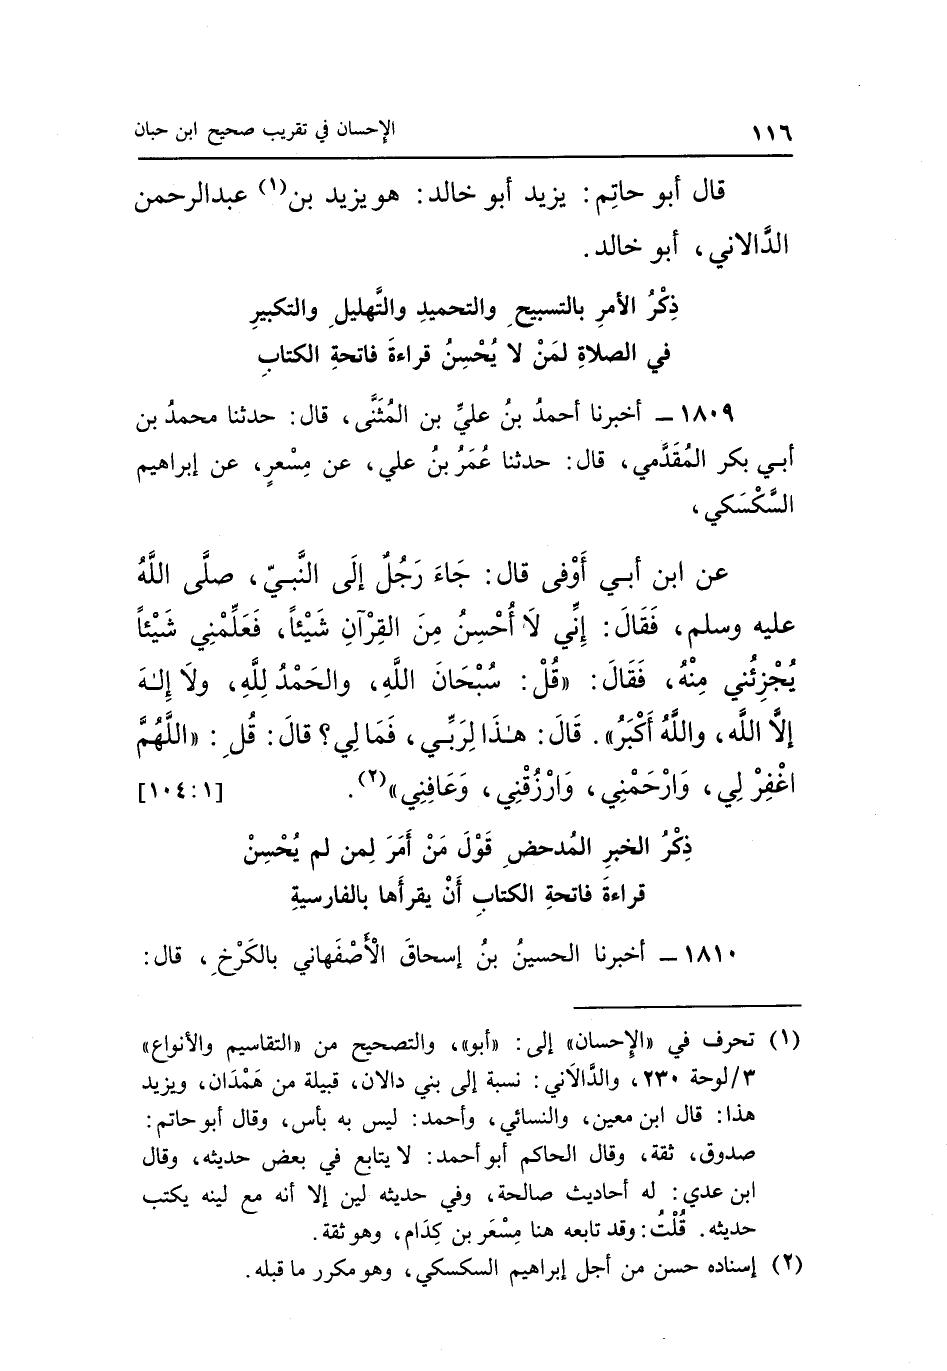 ١١٦ الإحسان في تقريب صحيح ابن حبان
قال أبو حاتِم: يزيد أبو خالد: هو يزيد بن(١) عبدالرحمن
الدَّالاني، أبو خالد.
ذِكْرُ الأمرِ بالتسبيحِ والتحميدِ والتَّهليلِ والتكبيرِ
في الصلاةِ لمَنْ لا يُحْسِنُ قراءةَ فاتحةِ الكتابِ
١٨٠٩ ـ أخبرنا أحمدُ بنُ عليِّ بن المُثَنَّى، قال: حدثنا محمدُ بن
أبي بكر المُقَدَّمي، قال: حدثنا عُمَرُ بنُ علي، عن مِسْعرٍ، عن إبراهيم
السَّكْسَكي،
عن ابن أبي أَوْفى قال: جَاءَ رَجُلٌ إلَى النَّبيّ، صلَّى اللَّهُ
عليه وسلم، فَقَالَ: إِنِّي لَا أُحْسِنُ مِنَ القِرْآنِ شَيْئاً، فَعَلِّمْنِي شَيْئاً
يُجْزِئُني مِنْهُ، فَقَالَ: «قُلْ: سُبْحَانَ اللَّهِ، والحَمْدُ لِلَّهِ، ولَا إِلٰهَ
إلَّا اللَّه، واللَّهُ أَكْبَرُ». قَالَ: هٰذَا لِرَبِّي، فَمَا لِي؟ قالَ: قُلِ: «اللَّهُمَّ
اغْفِرْ لِي، وَارْحَمْنِي، وَارْزُقْنِي، وَعَافِنِي»(٢). [١٠٤:١]
ذِكْرُ الخبرِ المُدحضِ قَوْلَ مَنْ أَمَرَ لِمن لم يُحْسِنْ
قراءةَ فاتحةِ الكتابِ أَنْ يقرأَها بالفارسيةِ
١٨١٠ ـ أخبرنا الحسينُ بنُ إسحاقَ الأَصْفهاني بالكَرْخِ، قال:
(١) تحرف في «الإحسان» إلى: «أبو»، والتصحيح من «التقاسيم والأنواع»
٣/لوحة ٢٣٠، والدَّالَاني: نسبة إلى بني دالان، قبيلة من هَمْدَان، ويزيد
هذا: قال ابن معين، والنسائي، وأحمد: ليس به بأس، وقال أبو حاتم:
صدوق، ثقة، وقال الحاكم أبو أحمد: لا يتابع في بعض حديثه، وقال
ابن عدي: له أحاديث صالحة، وفي حديثه لين إلا أنه مع لينه يكتب
حديثه. قُلْتُ: وقد تابعه هنا مِسْعَر بن كِدَام، وهو ثقة.
(٢) إسناده حسن من أجل إبراهيم السكسكي، وهو مكرر ما قبله.